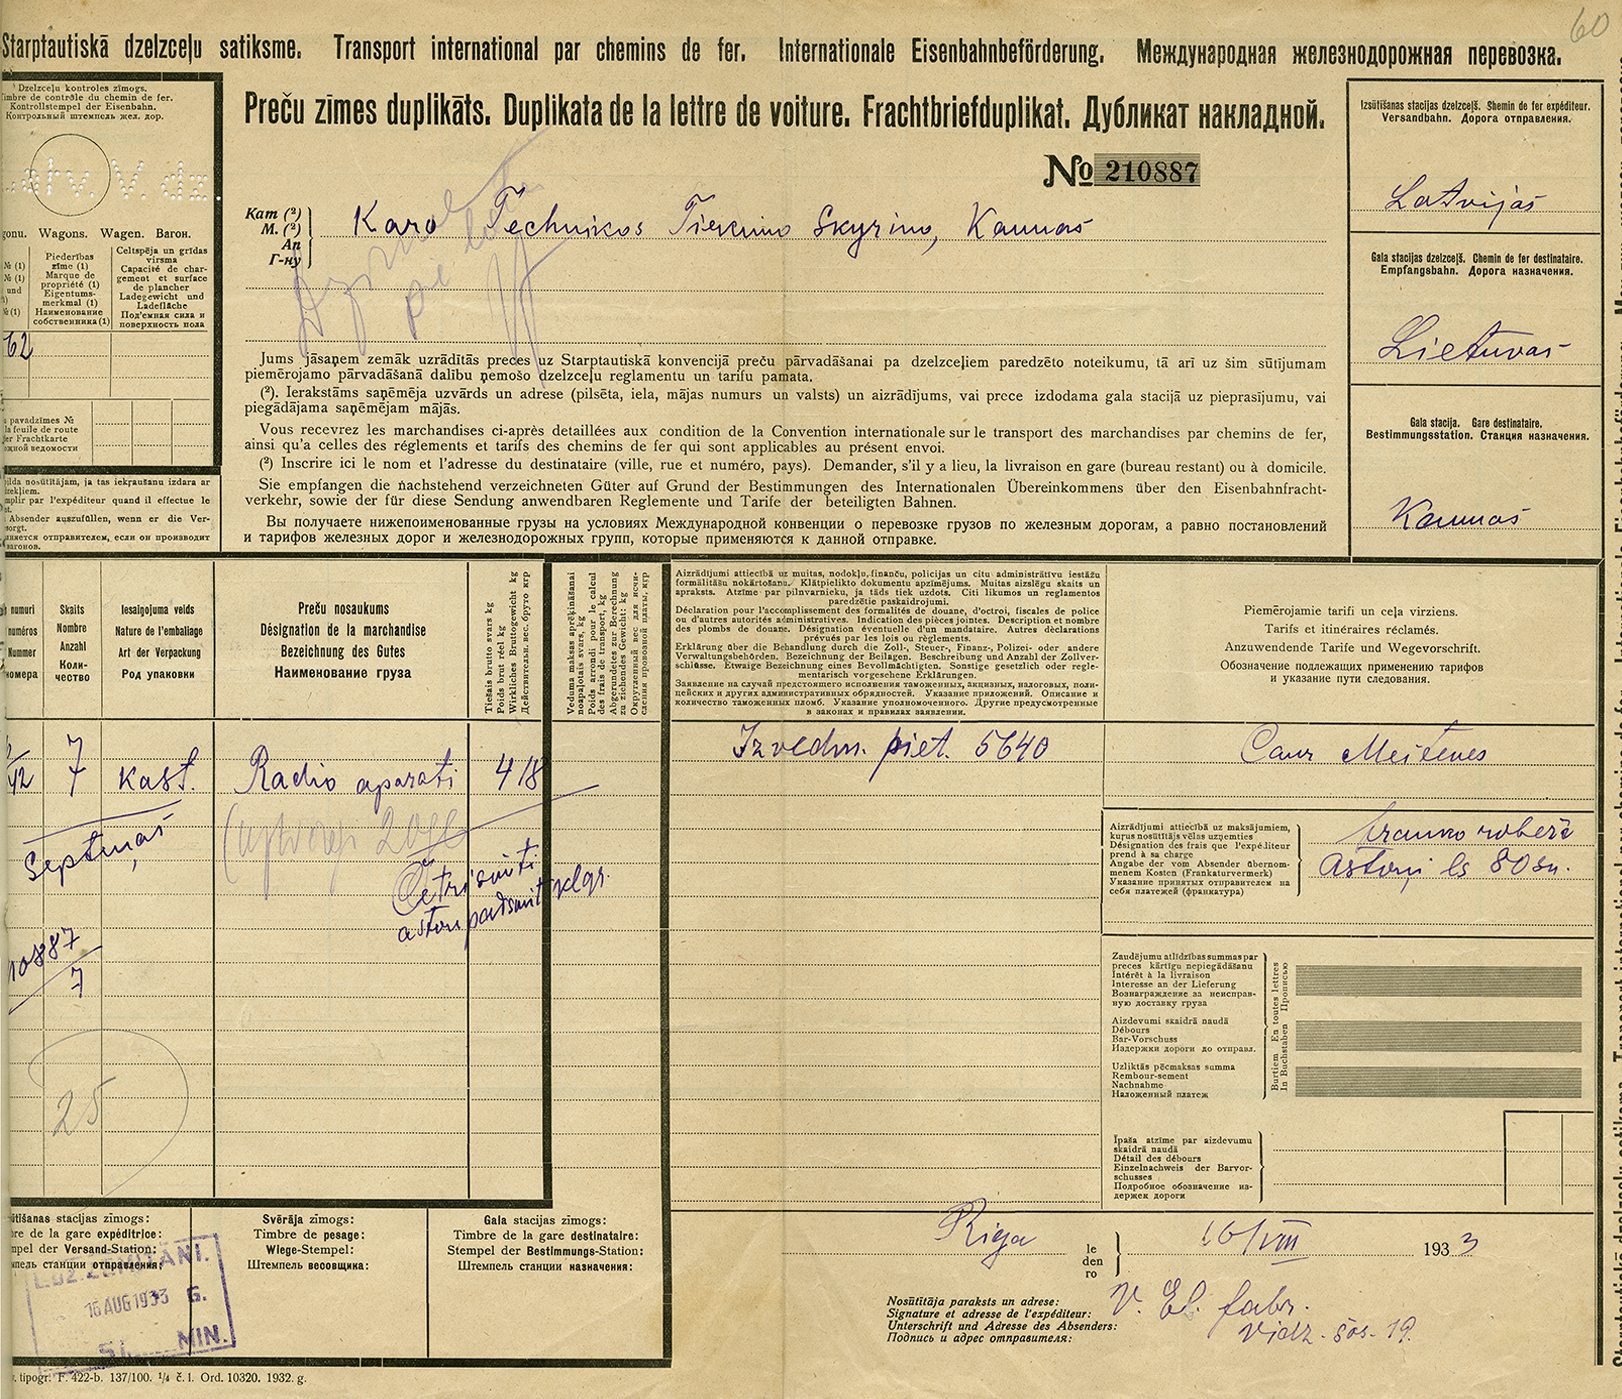 60
Starptautiskā dzelzceļu satiksme. Transport international par chemins de fer. Internationale Eisenbahnbeförderung. Международная железнодорожная перевозка.
Dzelzceļu kontroles zīmogs.
Timbre de contrôle du chemin de fer.
Kontrollstempel der Eisenbahn.
Контрольный штемпель жел. дор.
Latv. V. dz.
Preču zīmes duplikāts. Duplikata de la lettre de voiture. Frachtbriefduplikat. Дубликат накладной.
№ 210887
Kam (²)
M. (²)
An
Г-ну
Karo Technikos Tiekimo Skyrino, Kaunas
Izsūtīšanas stacijas dzelzceļš. Chemin de fer expéditeur.
Versandbahn. Дорога отправления.
Latvijas
Gala stacijas dzelzceļš. Chemin de fer destinataire.
Empfangsbahn. Дорога назначения.
Lietuvas
Gala stacija. Gare destinataire.
Bestimmungsstation. Станция назначения.
Kaunas
Wagons. Wagen. Вагон.
№ (1)
№ (1)
und
№ (1)
Piederības
zīme (1)
Marque de
propriété (1)
Eigentums-
merkmal (1)
Наименование
собственника (1)
Celtspēja un grīdas
virsma
Capacité de char-
gement et surface
de plancher
Ladegewicht und
Ladefläche
Под'емная сила и
поверхность пола
62
pavadzīmes №
la feuile de route
der Frachtkarte
ведомости
Jums jāsaņem zemāk uzrādītās preces uz Starptautiskā konvencijā preču pārvadāšanai pa dzelzceļiem paredzēto noteikumu, tā arī uz šim sūtījumam
piemērojamo pārvadāšanā dalību ņemošo dzelzceļu reglamentu un tarifu pamata.
(²). Ierakstāms saņēmēja uzvārds un adrese (pilsēta, iela, mājas numurs un valsts) un aizrādījums, vai prece izdodama gala stacijā uz pieprasījumu, vai
piegādājama saņēmējam mājās.
Vous recevrez les marchandises ci-après detaillées aux condition de la Convention internationale sur le transport des marchandises par chemins de fer,
ainsi qu'a celles des réglements et tarifs des chemins de fer qui sont applicables au présent envoi.
(²) Inscrire ici le nom et l'adresse du destinataire (ville, rue et numéro, pays). Demander, s'il y a lieu, la livraison en gare (bureau restant) ou à domicile.
Sie empfangen die nachstehend verzeichneten Güter auf Grund der Bestimmungen des Internationalen Übereinkommens über den Eisenbahnfracht-
verkehr, sowie der für diese Sendung anwendbaren Reglemente und Tarife der beteiligten Bahnen.
Вы получаете нижепоименованные грузы на условиях Международной конвенции о перевозке грузов по железным дорогам, а равно постановлений
и тарифов железных дорог и железнодорожных групп, которые применяются к данной отправке.
nosūtītājam, ja tas iekraušanu izdara ar
par l'expéditeur quand il effectue le
Absender auszufüllen, wenn er die Ver-
отправителем, если он производит
numuri
numéros
Nummer
номера
Skaits
Nombre
Anzahl
Коли-
чество
Iesaiņojuma veids
Nature de l'emballage
Art der Verpackung
Род упаковки
Preču nosaukums
Désignation de la marchandise
Bezeichnung des Gutes
Наименование груза
Tiešais brutto svars kg
Poids brut réel kg
Wirkliches Bruttogewicht kg
Действительн. вес. брутто кгр
Veduma maksas aprēķināšanai
noapaļots svars, kg
Poids arrondi pour le calcul
des frais de transport, kg
Abgerundetes zur Berechnung
zu ziehendes Gewicht: kg
Округленный вес для исчи-
сления провозной платы, кгр
Aizrādījumi attiecībā uz muitas, nodokļu, finanču, policijas un citu administratīvu iestāžu
formālitāšu nokārtošanu. Klātpielikto dokumentu apzīmējums. Muitas aizslēgu skaits un
apraksts. Atzīme par pilnvarnieku, ja tāds tiek uzdots. Citi likumos un reglamentos
paredzētie paskaidrojumi.
Déclaration pour l'accomplissement des formalités de douane, d'octroi, fiscales de police
ou d'autres autorités administratives. Indication des pièces jointes. Description et nombre
des plombs de douane. Désignation éventuelle d'un mandataire. Autres déclarations
prévues par les lois ou règlements.
Erklärung über die Behandlung durch die Zoll-, Steuer-, Finanz-, Polizei- oder andere
Verwaltungsbehörden. Bezeichnung der Beilagen. Beschreibung und Anzahl der Zollver-
schlüsse. Etwaige Bezeichnung eines Bevollmächtigten. Sonstige gesetzlich oder regle-
mentarisch vorgesehene Erklärungen.
Заявление на случай предстоящего исполнения таможенных, акцизных, налоговых, поли-
цейских и других административных обрядностей. Указание приложений. Описание и
количество таможенных пломб. Указание уполномоченного. Другие предусмотренные
в законах и правилах заявления.
Piemērojamie tarifi un ceļa virziens.
Tarifs et itinéraires réclamés.
Anzuwendende Tarife und Wegevorschrift.
Обозначение подлежащих применению тарифов
и указание пути следования.
Izvedm. piet. 5640
Caur Meitenes
42 7 kast. Radio aparati 418
Septiņas
Četrisimti
astoņpadsmit klgr.
10887
7
25
Aizrādījumi attiecībā uz maksājumiem,
kuŗus nosūtītājs vēlas uzņemties
Désignation des frais que l'expéditeur
prend à sa charge
Angabe der vom Absender übernom-
menem Kosten (Frankaturvermerk)
Указание принятых отправителем на
себя платежей (франкатура)
franko robeža
Astoņi ls 80 sn.
Zaudējumu atlīdzības summas par
preces kārtīgu nepiegādāšanu
Intérêt à la livraison
Interesse an der Lieferung
Вознаграждение за неисправ-
ную доставку груза
Aizdevumi skaidrā naudā
Débours
Bar-Vorschuss
Издержки дороги до отправл.
Uzliktās pēcmaksas summa
Rembour-sement
Nachnahme
Наложенный платеж
Burtiem En toutes lettres
In Buchstaben Прописью
Īpaša atzīme par aizdevumu
skaidrā naudā
Détail des débours
Einzelnachweis der Barvor-
schusses
Подробное обозначение из-
держек дороги
stacijas zīmogs:
de la gare expéditrice:
der Versand-Station:
станции отправления:
16 AUG 1933 G.
ST. MIN.
Svērāja zīmogs:
Timbre de pesage:
Wiege-Stempel:
Штемпель весовщика:
Gala stacijas zīmogs:
Timbre de la gare destinataire:
Stempel der Bestimmungs-Station:
Штемпель станции назначения:
Riga
le
den
го
16/VIII 1933
Nosūtītāja paraksts un adrese:
Signature et adresse de l'expéditeur:
Unterschrift und Adresse des Absenders:
Подпись и адрес отправителя:
V. El. fabr.
Vidz. šos. 19.
tipogr. F. 422-b. 137/100. ¼ č. l. Ord. 10320. 1932. g.